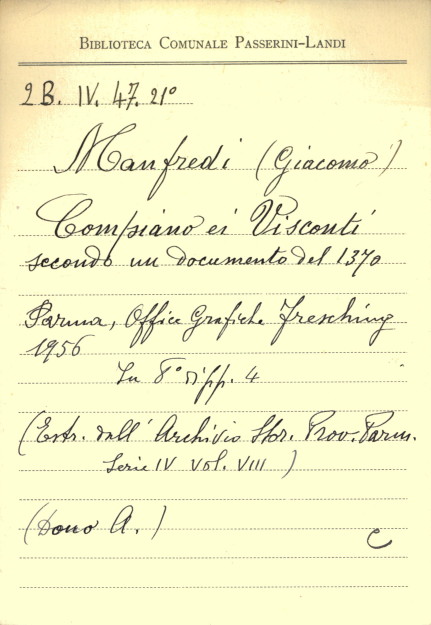 BIBLIOTECA COMUNALE PASSERINI-LANDI
2B. IV. 47. 21°
Manfredi (Giacomo)
Compiano ei Visconti
secondo un documento del 1370
Parma, Office Grafiche Fresching
1956
In 8° di pp. 4
(Estr. dall' Archivio Stor. Prov. Parm.
Serie IV Vol. VIII)
(Dono A.)
C